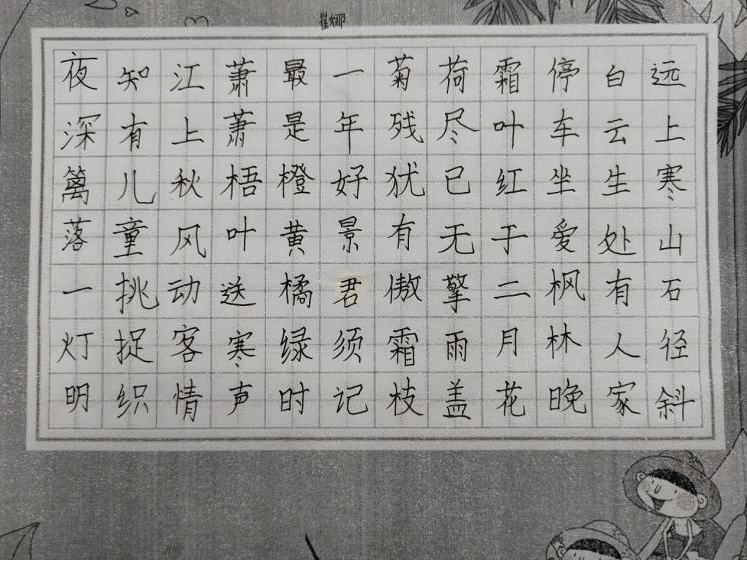 崔娜
远上寒山石径斜
白云生处有人家
停车坐爱枫林晚
霜叶红于二月花
荷尽已无擎雨盖
菊残犹有傲霜枝
一年好景君须记
最是橙黄橘绿时
萧萧梧叶送寒声
江上秋风动客情
知有儿童挑捉织
夜深篱落一灯明